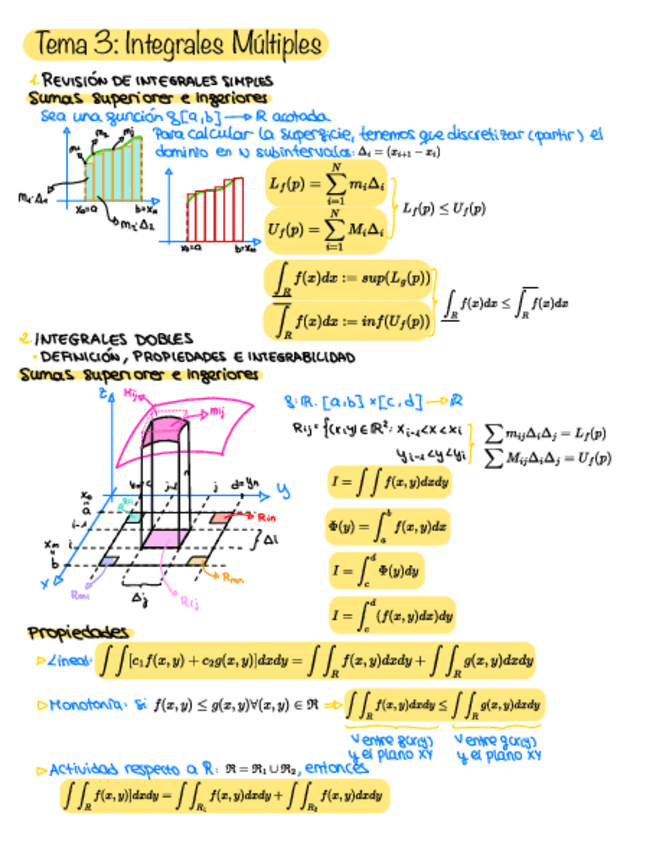 Tema 3: Integrales Múltiples
1. REVISIÓN DE INTEGRALES SIMPLES
Sumas superiores e inferiores
Sea una función f[a,b] → R acotada
Para calcular la superficie, tenemos que discretizar (partir) el
dominio en N subintervalos: Δᵢ = (xᵢ₊₁ − xᵢ)
m₁ m₂ mⱼ
m₁·Δ₁
x₀=a b=xₙ
m₂·Δ₂
x₀=a b=xₙ
L_f(p) = ∑_{i=1}^{N} mᵢΔᵢ
U_f(p) = ∑_{i=1}^{N} MᵢΔᵢ
L_f(p) ≤ U_f(p)
∫_R f(x)dx := sup(L_g(p))
∫_R f(x)dx := inf(U_f(p))
∫_R f(x)dx ≤ ∫_R f(x)dx
2. INTEGRALES DOBLES
· DEFINICIÓN, PROPIEDADES E INTEGRABILIDAD
Sumas superiores e inferiores
z Mij mij
f: R. [a,b] × [c,d] → R
Rij = {(x,y) ∈ R²: xᵢ₋₁<x<xᵢ
yᵢ₋₁<y<yᵢ
∑ mᵢⱼΔᵢΔⱼ = L_f(p)
∑ MᵢⱼΔᵢΔⱼ = U_f(p)
j-1 j d=yₙ y
x₀ a i-1 i xₘ b x
Rin Δi
Rmn
Δj Rij
I = ∫∫ f(x,y)dxdy
Φ(y) = ∫_a^b f(x,y)dx
I = ∫_c^d Φ(y)dy
I = ∫_c^d (f(x,y)dx)dy
Propiedades
▷ Lineal: ∫∫[c₁f(x,y) + c₂g(x,y)]dxdy = ∫∫_R f(x,y)dxdy + ∫∫_R g(x,y)dxdy
▷ Monotonía: Si f(x,y) ≤ g(x,y)∀(x,y) ∈ ℜ ⇒ ∫∫_R f(x,y)dxdy ≤ ∫∫_R g(x,y)dxdy
V entre f(x,y) y el plano XY
V entre g(x,y) y el plano XY
▷ Actividad respecto a R: ℜ = ℜ₁ ∪ ℜ₂, entonces
∫∫_R f(x,y)]dxdy = ∫∫_{R₁} f(x,y)dxdy + ∫∫_{R₂} f(x,y)dxdy